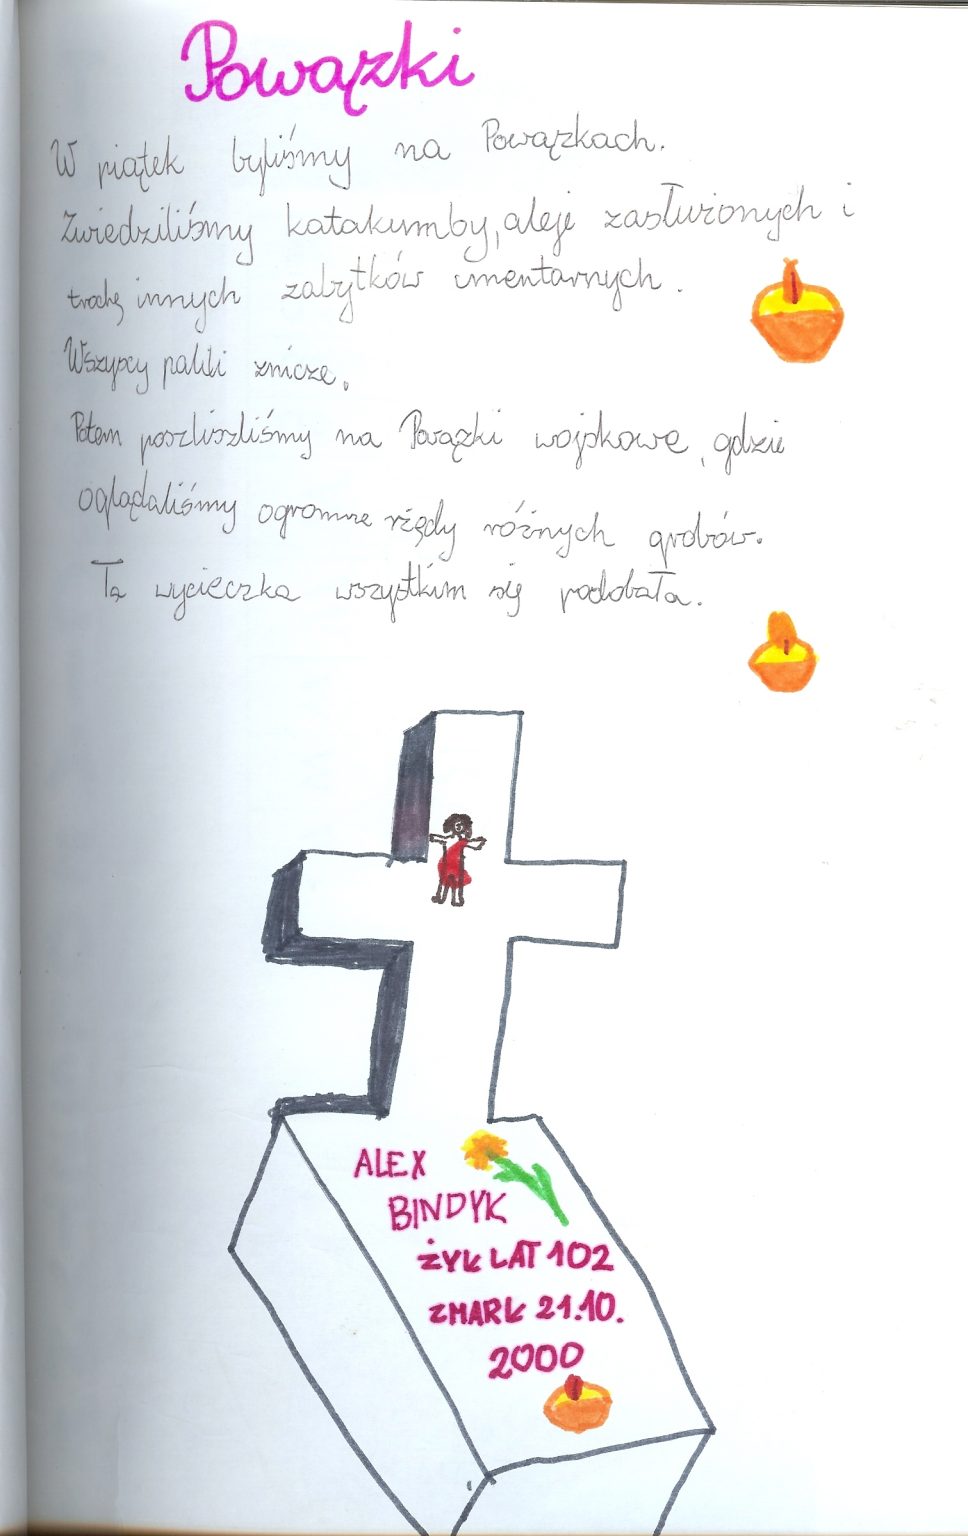 Powązki
W piątek byliśmy na Powązkach.
Zwiedziliśmy katakumby, aleje zasłużonych i
trochę innych zabytków cmentarnych.
Wszyscy palili znicze.
Potem poszliszliśmy na Powązki wojskowe, gdzie
oglądaliśmy ogromne rzędy różnych grobów.
Ta wycieczka wszystkim się podobała.
ALEX
BINDYK
ŻYŁ LAT 102
ZMARŁ 21.10.
2000